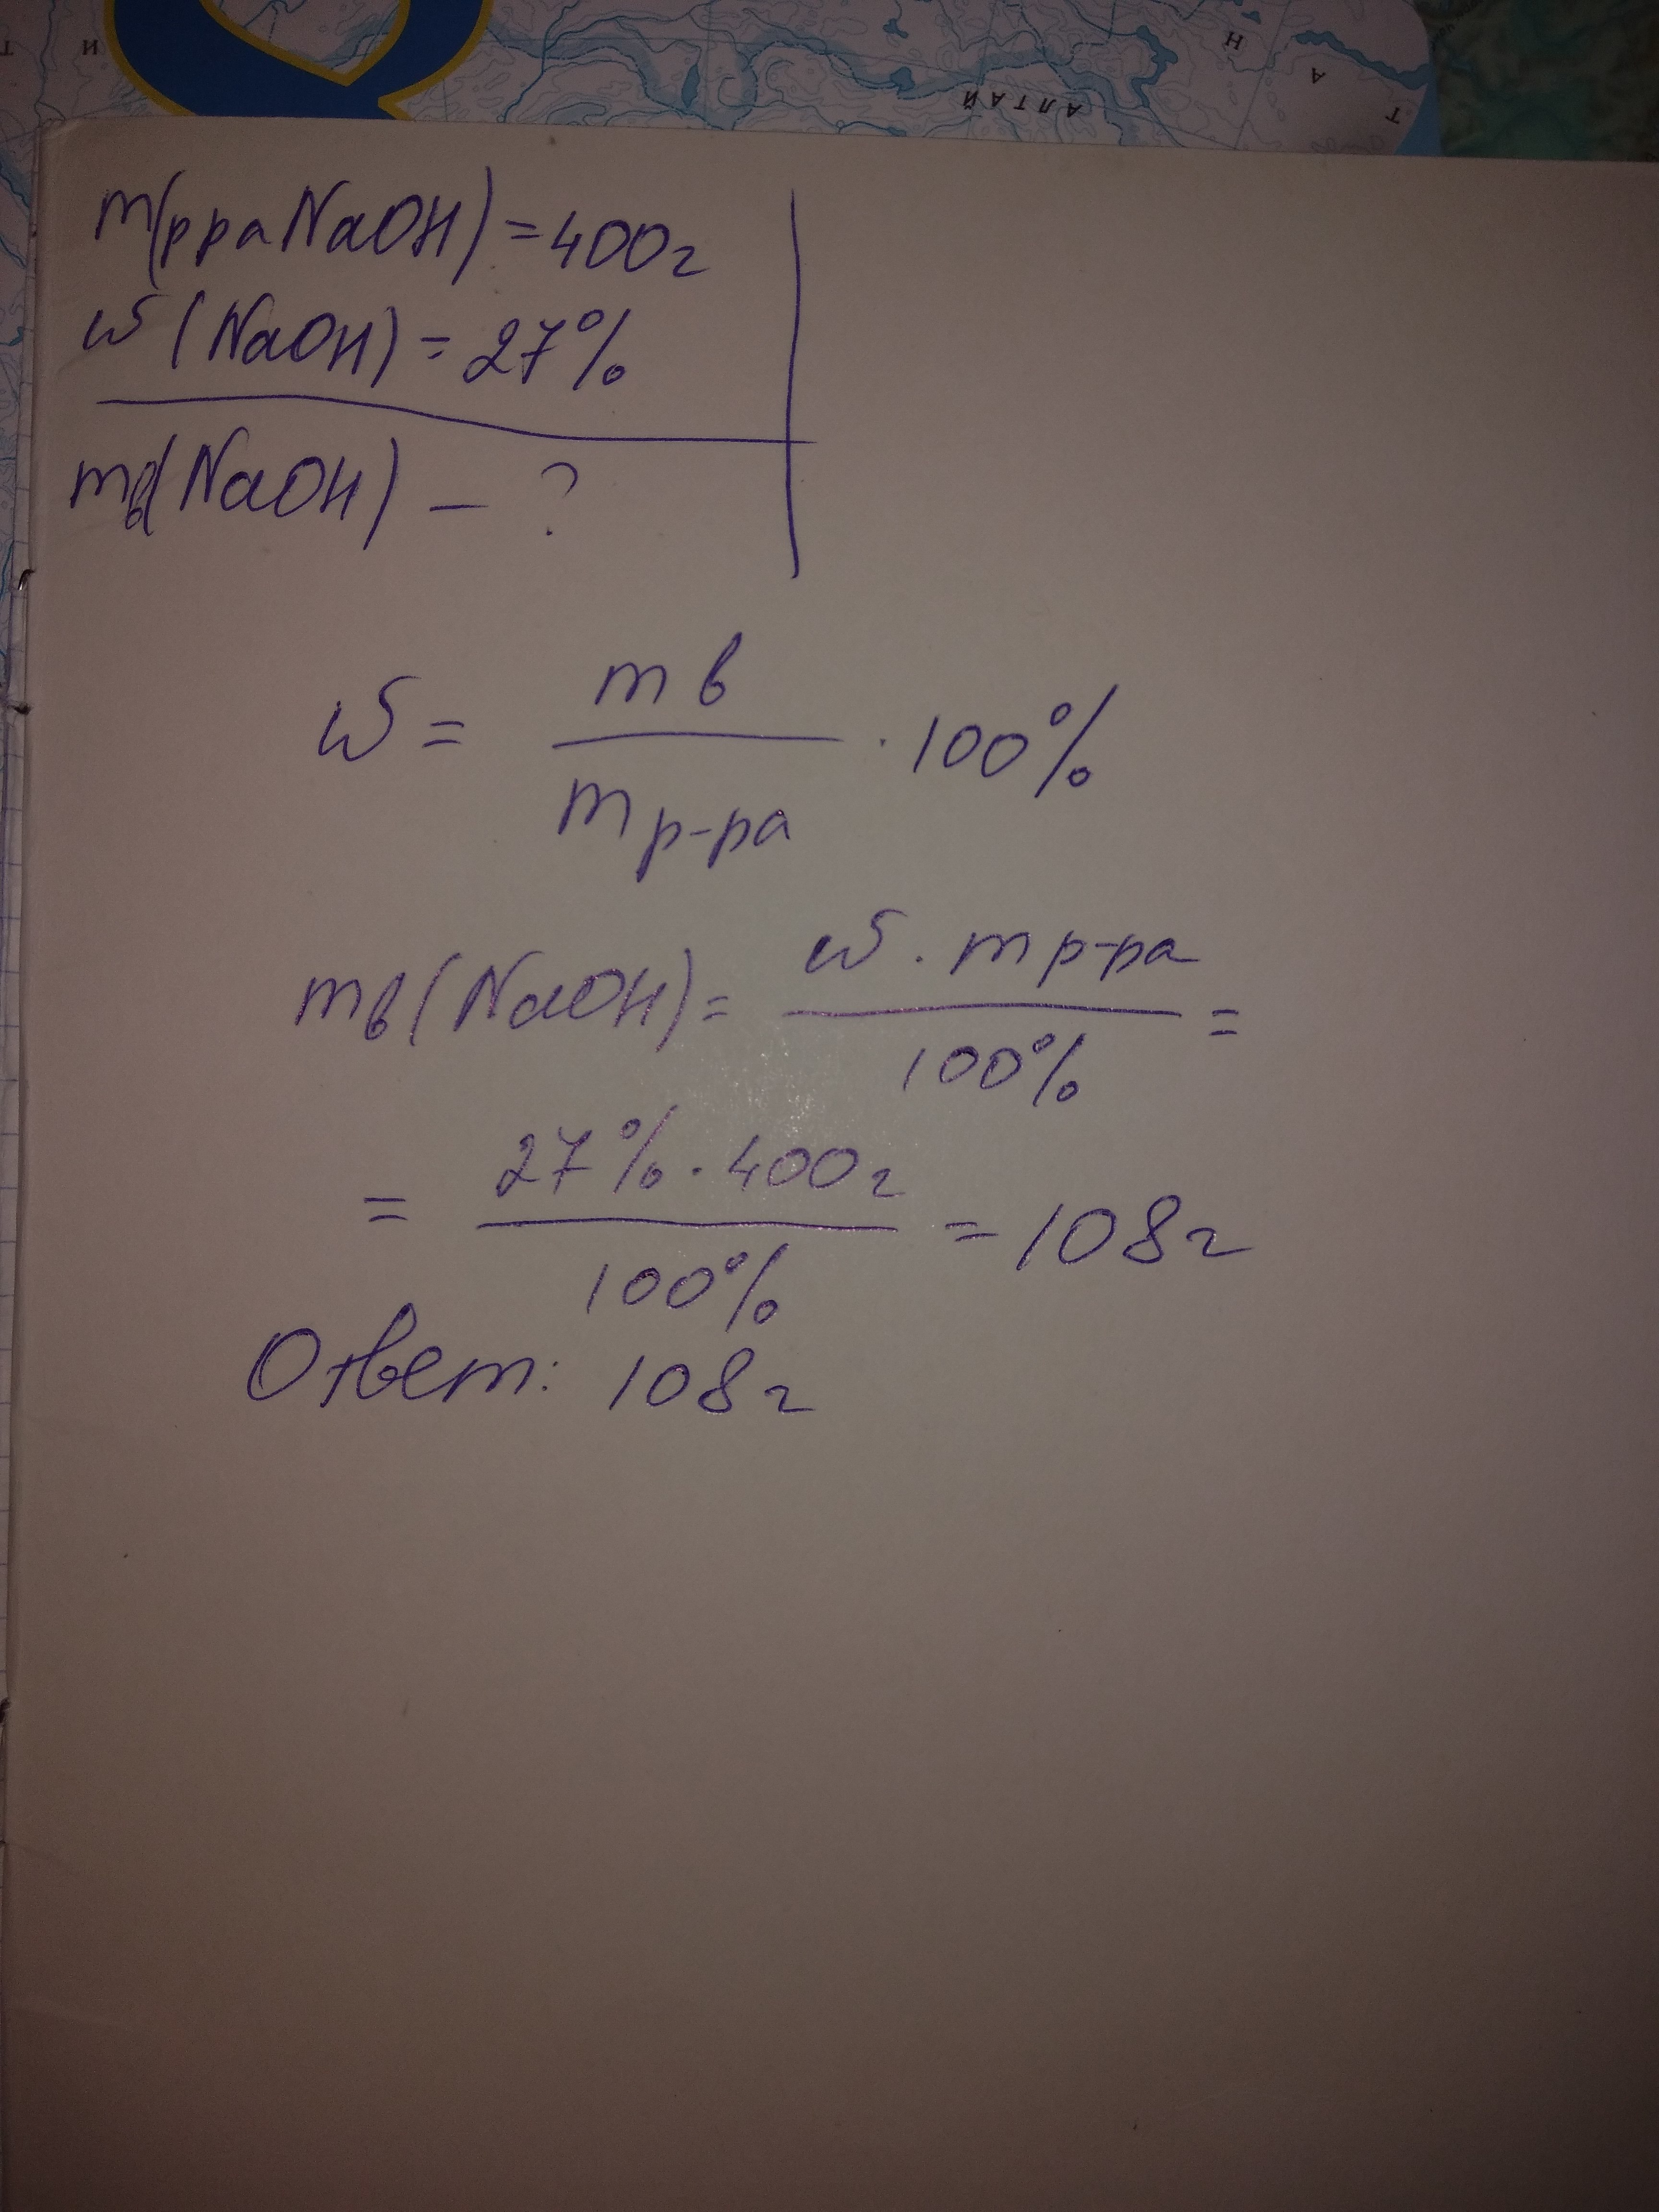 И
Н
А
Т
АЛТАЙ
m(рра NaOH) = 400г
ω (NaOH) = 27%
mв(NaOH) – ?
ω = mв / m р-ра · 100%
mв (NaOH) = ω · m р-ра / 100% =
= 27% · 400г / 100% = 108г
Ответ: 108г